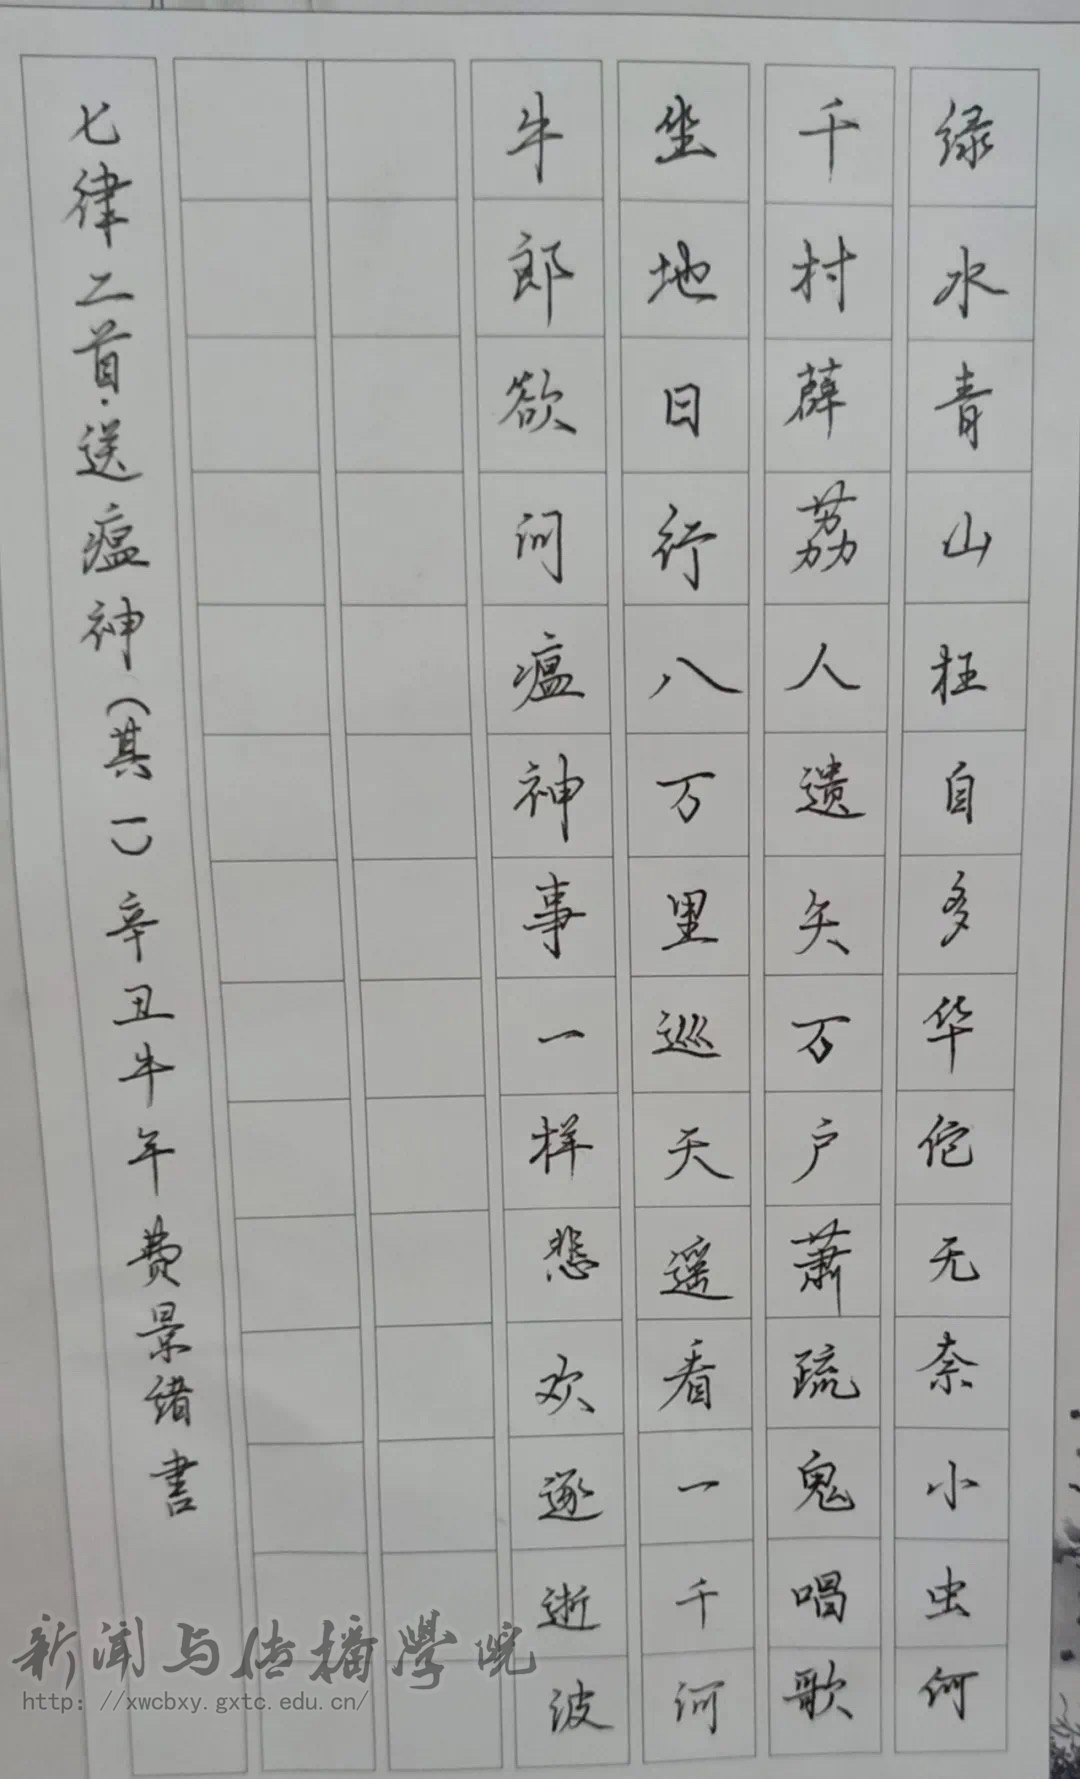 绿水青山枉自多华佗无奈小虫何
千村薜荔人遗矢万户萧疏鬼唱歌
坐地日行八万里巡天遥看一千河
牛郎欲问瘟神事一样悲欢逐逝波
七律二首·送瘟神(其一)辛丑牛年费景绪书
新闻与传播學院
http://xwcbxy.gxtc.edu.cn/